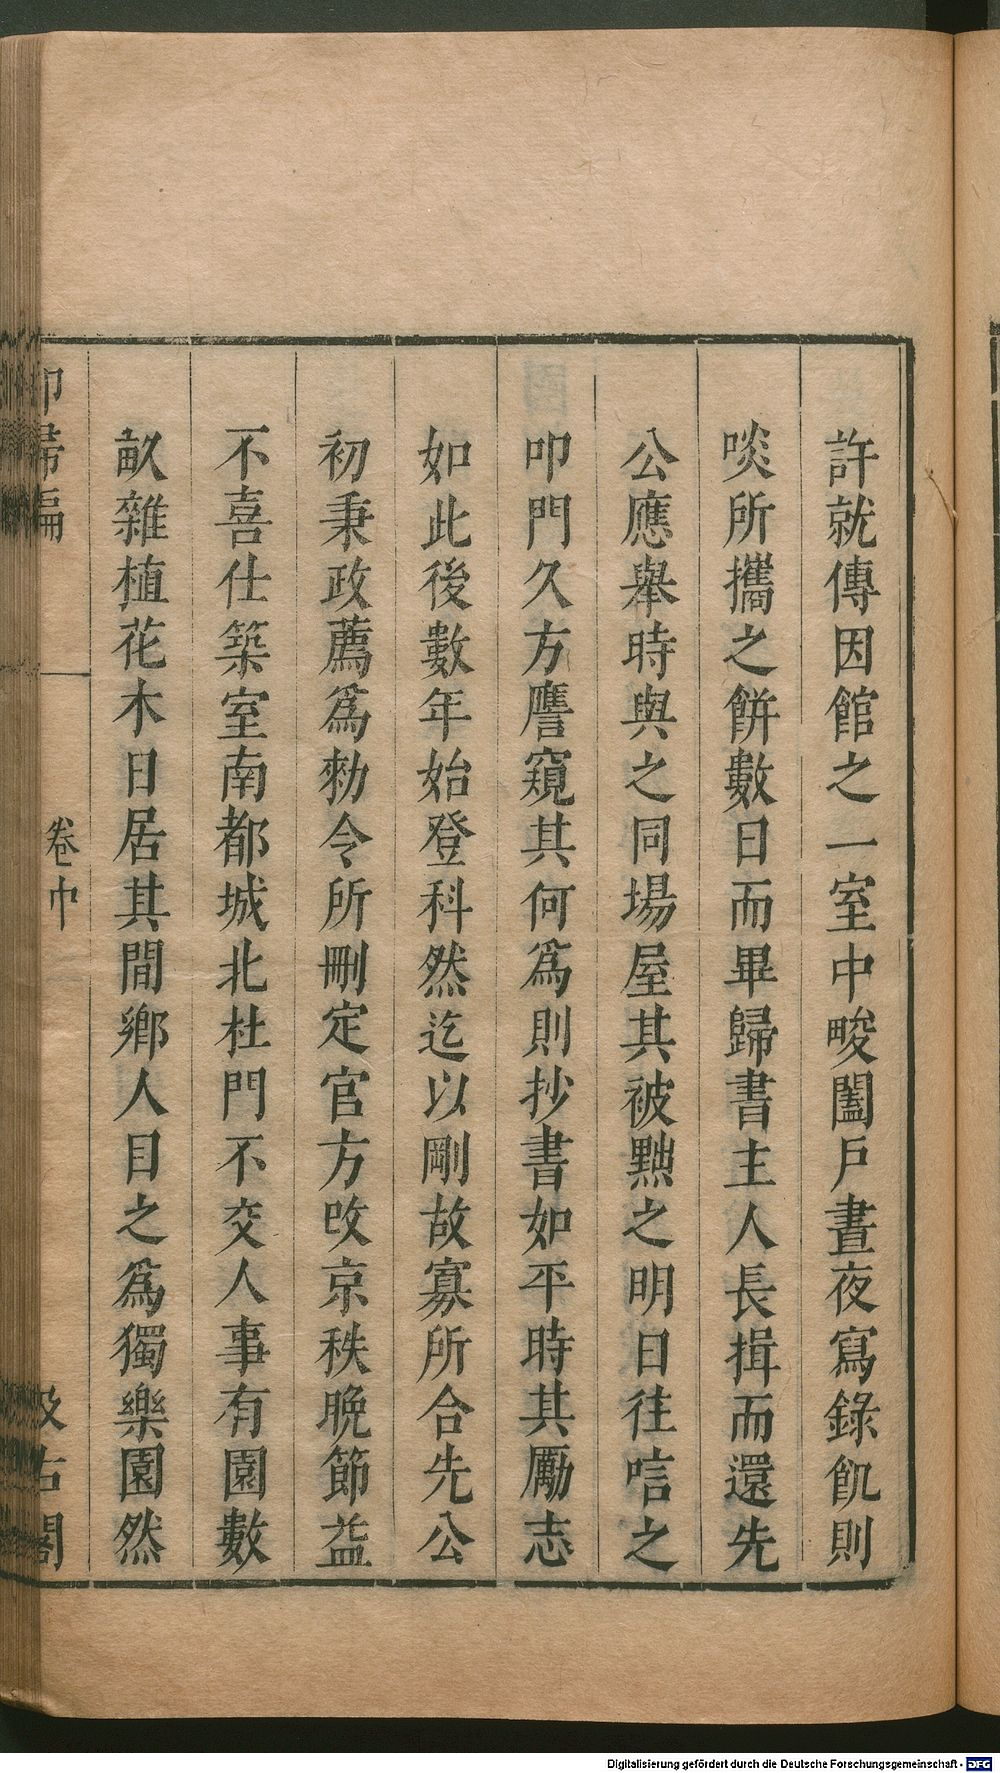 許就傳因館之一室中畯闔戶晝夜寫錄飢則
啖所攜之餅數日而畢歸書主人長揖而還先
公應舉時與之同場屋其被黜之明日往唁之
叩門久方譍窺其何爲則抄書如平時其勵志
如此後數年始登科然迄以剛故寡所合先公
初秉政薦爲勅令所刪定官方改京秩晚節益
不喜仕築室南都城北杜門不交人事有園數
畝雜植花木日居其間鄉人目之爲獨樂園然
卻掃編 卷中 汲古閣
Digitalisierung gefördert durch die Deutsche Forschungsgemeinschaft - DFG